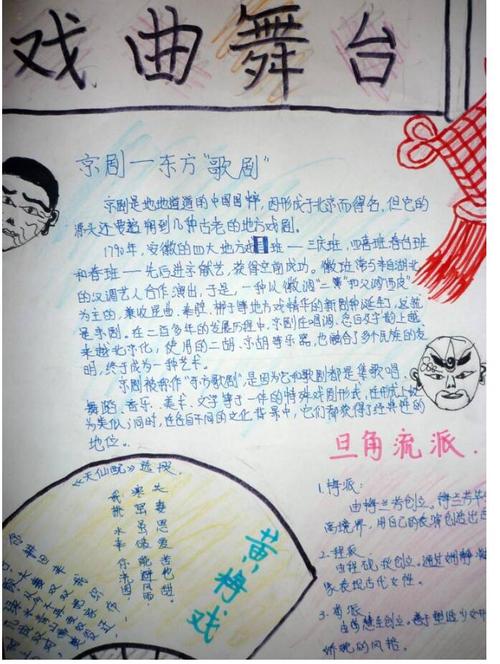 戏曲舞台
京剧一东方"歌剧"
京剧是地地道道的中国国粹,因形成于北京而得名,但它的
源头还要追溯到几种古老的地方戏剧。
1790年,安徽的四大地方戏班——三庆班、四喜班春台班
和春班——先后进京献艺,获得空前成功。徽班常与来自湖北
的汉调艺人合作演出,于是,一种以徽调"二黄"和汉调"西皮"
为主的,兼收昆曲、秦腔、梆子等地方戏精华的新剧种诞生了,这就
是京剧。在二百多年的发展历程中,京剧在唱调、念白及字韵上越
来越北京化,使用的二胡、京胡等乐器,也融合了多个民族的发
明,终于成为一种艺术
京剧被称作"东方歌剧",是因为它和歌剧都是集歌唱、
舞蹈、音乐、美术、文学等于一体的特殊戏剧形式,在形式上较
为类似,同时,在各自不同的文化背景中,它们都获得了经典性的
地位。
旦角流派
1.梅派:
由梅兰芳创立。
用自己的表演创造出
2.程派
由程砚秋创立。通过
象表现古代女性。
3.荀派
的风格。
《天仙配》选段
夫妻恩爱苦也甜
寒窑虽能避风雨
我挑水来你浇园
黄梅戏